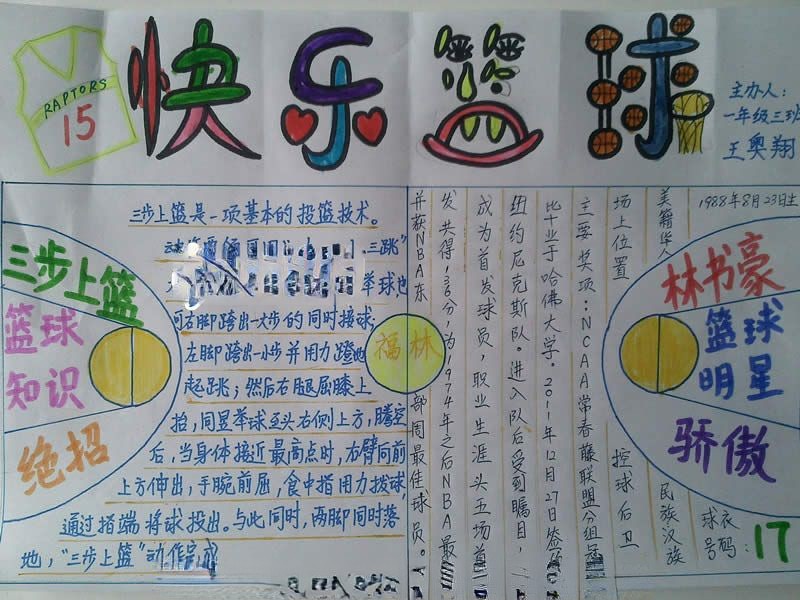 RAPTORS
15
快乐篮球
主办人：
一年级三班
王奥翔
三步上篮
篮球
知识
绝招
三步上篮是一项基本的投篮技术。
三跳"
举球也
右脚跨出一大步的同时接球；
左脚跨出一小步并用力蹬地
起跳；然后右腿屈膝上
抬，同时举球至头右侧上方，腾空
后，当身体接近最高点时，右臂向前
上方伸出，手腕前屈，食中指用力拨球，
通过指端将球投出。与此同时，两脚同时落
地，"三步上篮"动作完成
福林
1988年8月23日生
美籍华人
民族汉族
球衣
号码：17
场上位置 控球后卫
主要奖项：NCAA常春藤联盟分组
毕业于哈佛大学。2011年12月27日签约
纽约尼克斯队。进入队后受到瞩目，
成为首发球员，职业生涯头五场首
发共得136分，为1974年之后NBA最
并获NBA东部周最佳球员。
林书豪
篮球
明星
骄傲